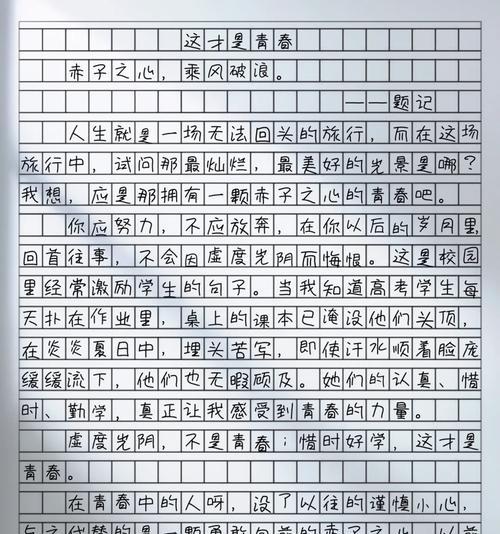 这才是青春
赤子之心，乘风破浪。
——题记
人生就是一场无法回头的旅行，而在这场
旅行中，试问那最灿烂，最美好的光景是哪？
我想，应是那拥有一颗赤子之心的青春吧。
你应努力，不应放奔，在你以后的岁月里
回首往事，不会因虚度光阴而悔恨。这是校园
里经常激励学生的句子。当我知道高考学生每
天扑在作业里，桌上的课本已淹没他们头顶，
在炎炎夏日中，埋头苦军，即使汗水顺着脸庞
缓缓流下，他们也无暇顾及。她们的认真、惜
时、勤学，真正让我感受到青春的力量。
虚度光阴，不是青春；惜时好学，这才是
青春。
在青春中的人呀，没了以往的谨慎小心，
与之代替的是一颗勇敢向前的赤子之心